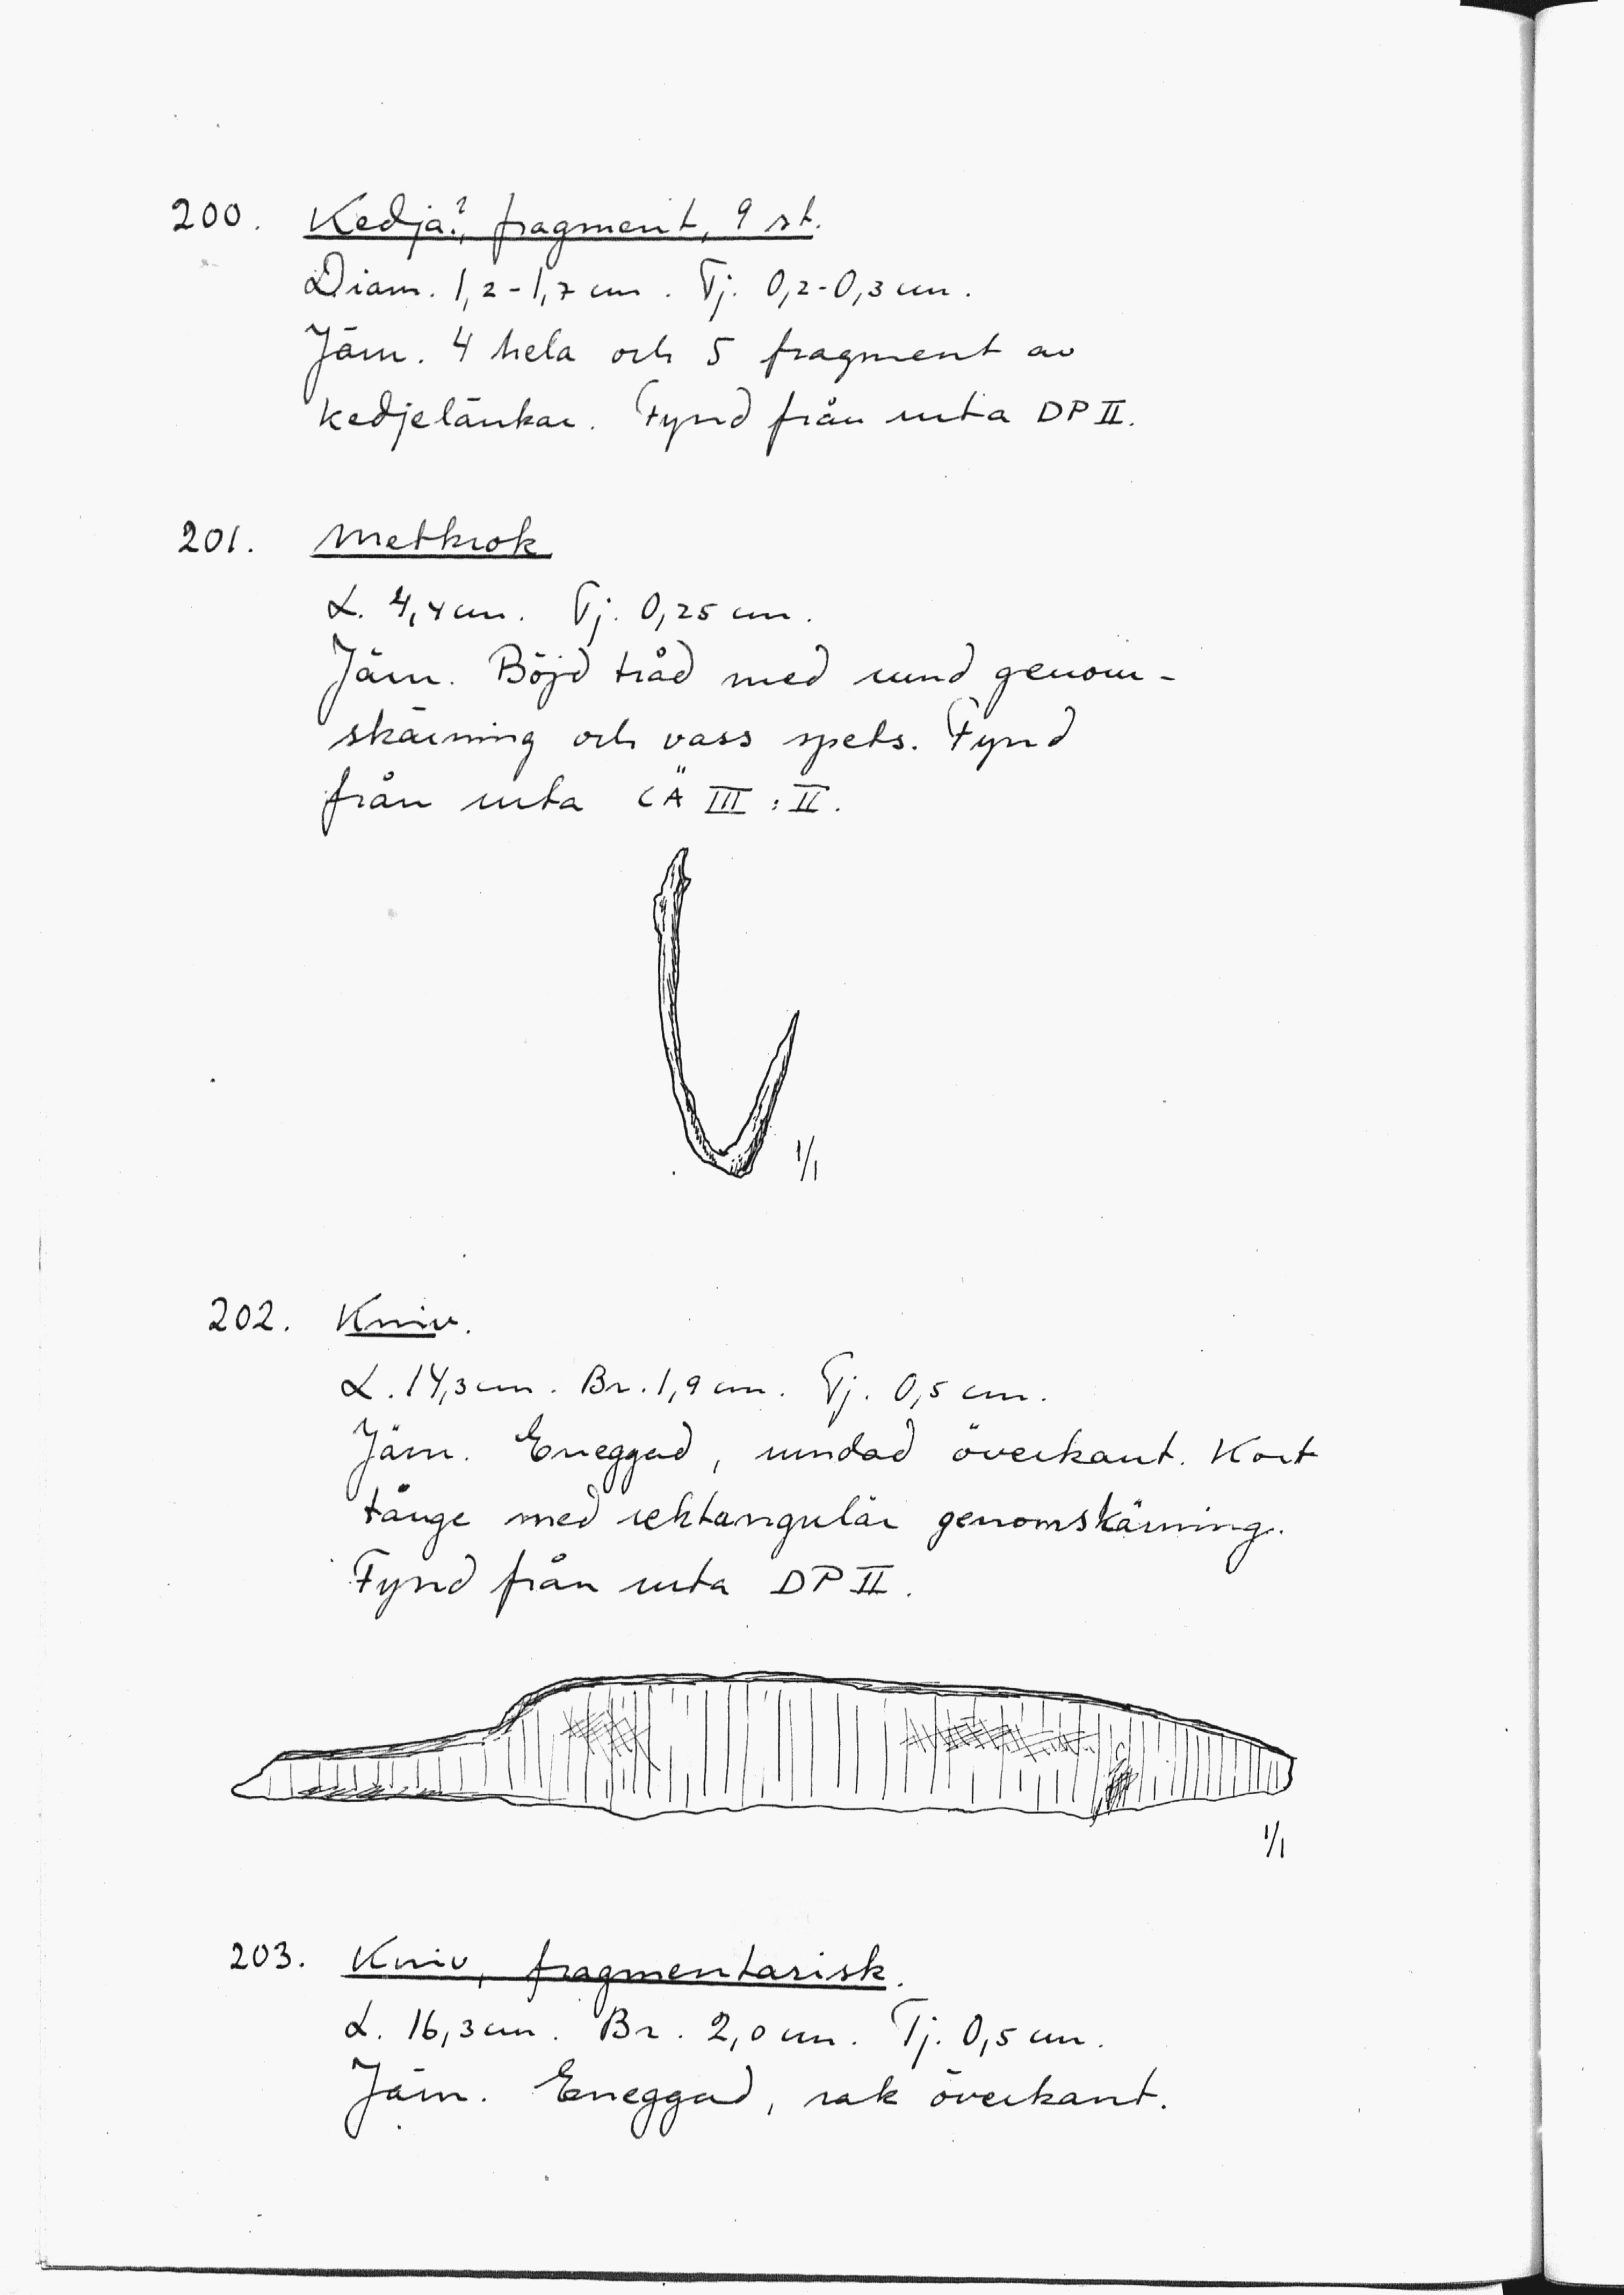 200. Kedja?, fragment, 9 st.
Diam. 1,2-1,7 cm. Tj. 0,2-0,3 cm.
Järn. 4 hela och 5 fragment av
kedjelänkar. Fynd från ruta DP II.
201. Metkrok
L. 4,4 cm. Tj. 0,25 cm.
Järn. Böjd tråd med rund genom-
skärning och vass spets. Fynd
från ruta CÄ III:II.
1/1
202. Kniv.
L. 14,3 cm. Br. 1,9 cm. Tj. 0,5 cm.
Järn. Eneggad, rundad överkant. Kort
tånge med rektangulär genomskärning.
Fynd från ruta DP II.
1/1
203. Kniv, fragmentarisk.
L. 16,3 cm. Br. 2,0 cm. Tj. 0,5 cm.
Järn. Eneggad, rak överkant.